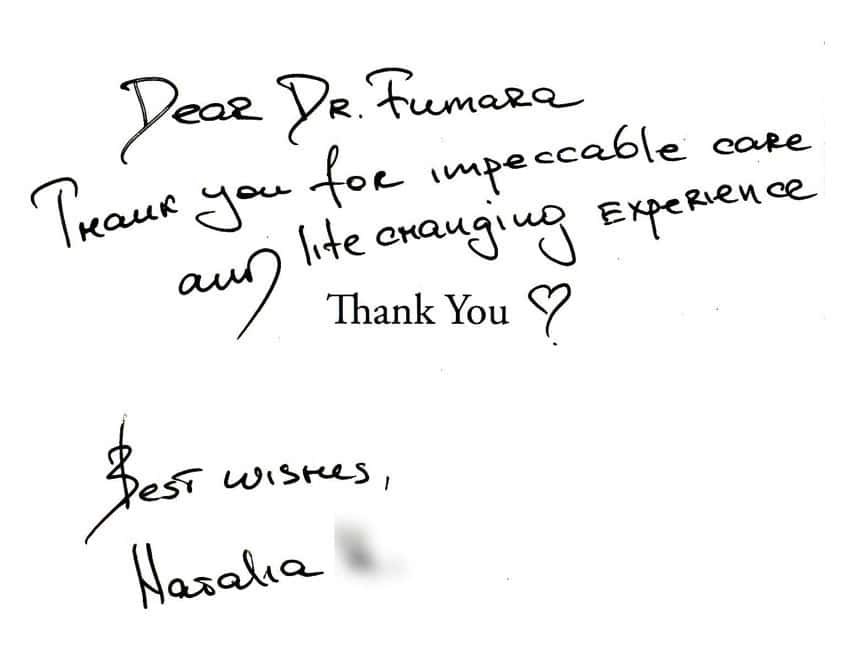 Dear Dr. Fumara
Thank you for impeccable care
and life changing experience
Thank You ♡
Best wishes,
Natalia